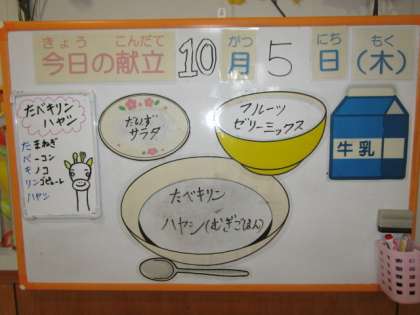 きょう こんだて がつ にち もく
今日の献立 10月5日(木)
たべキリン
ハヤシ
たまねぎ
ベーコン
キノコ
リンゴピューレ
ハヤシ
だいず
サラダ
フルーツ
ゼリーミックス
牛乳
たべキリン
ハヤシ(むぎごはん)